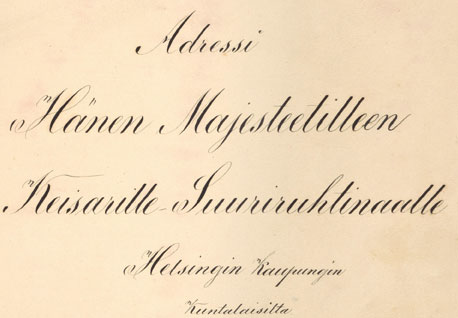 Adressi
Hänen Majesteetilleen
Keisarille-Suuriruhtinaalle
Helsingin Kaupungin
Kuntalaisilta